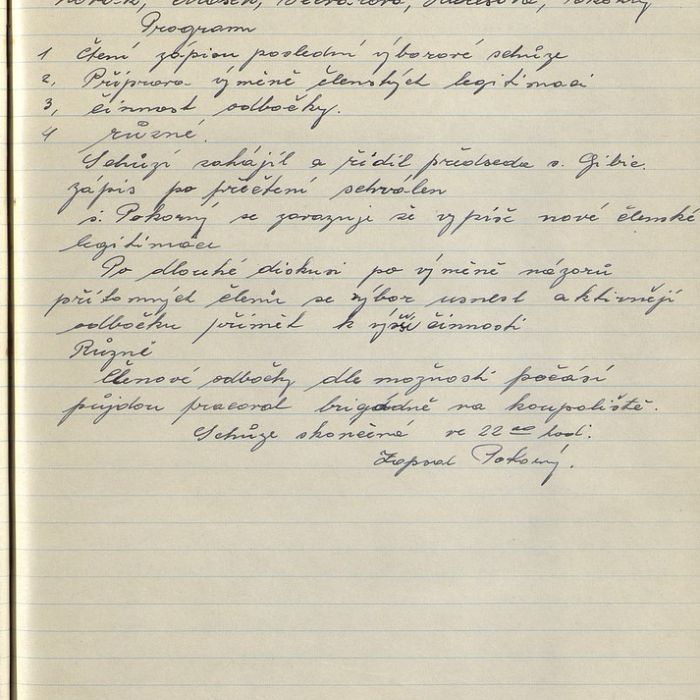 Program
1 čtení zápisu poslední výborové schůze
2, Příprava výměně členských legitimací
3, činnost odbočky.
4 různé.
Schůzi zahájil a řídil předseda s. Gibic.
zápis po přečtení schválen
s. Pokorný se zavazuje že vypíše nové členské
legitimace
Po dlouhé diskusi po výměně názorů
přítomných členů se výbor usnesl aktivněji
odbočku přimět k vyšší činnosti
Různé
Členové odbočky dle možnosti počasí
půjdou pracovat brigádně na koupaliště.
Schůze skončena ve 22 00 hod.
Zapsal Pokorný.